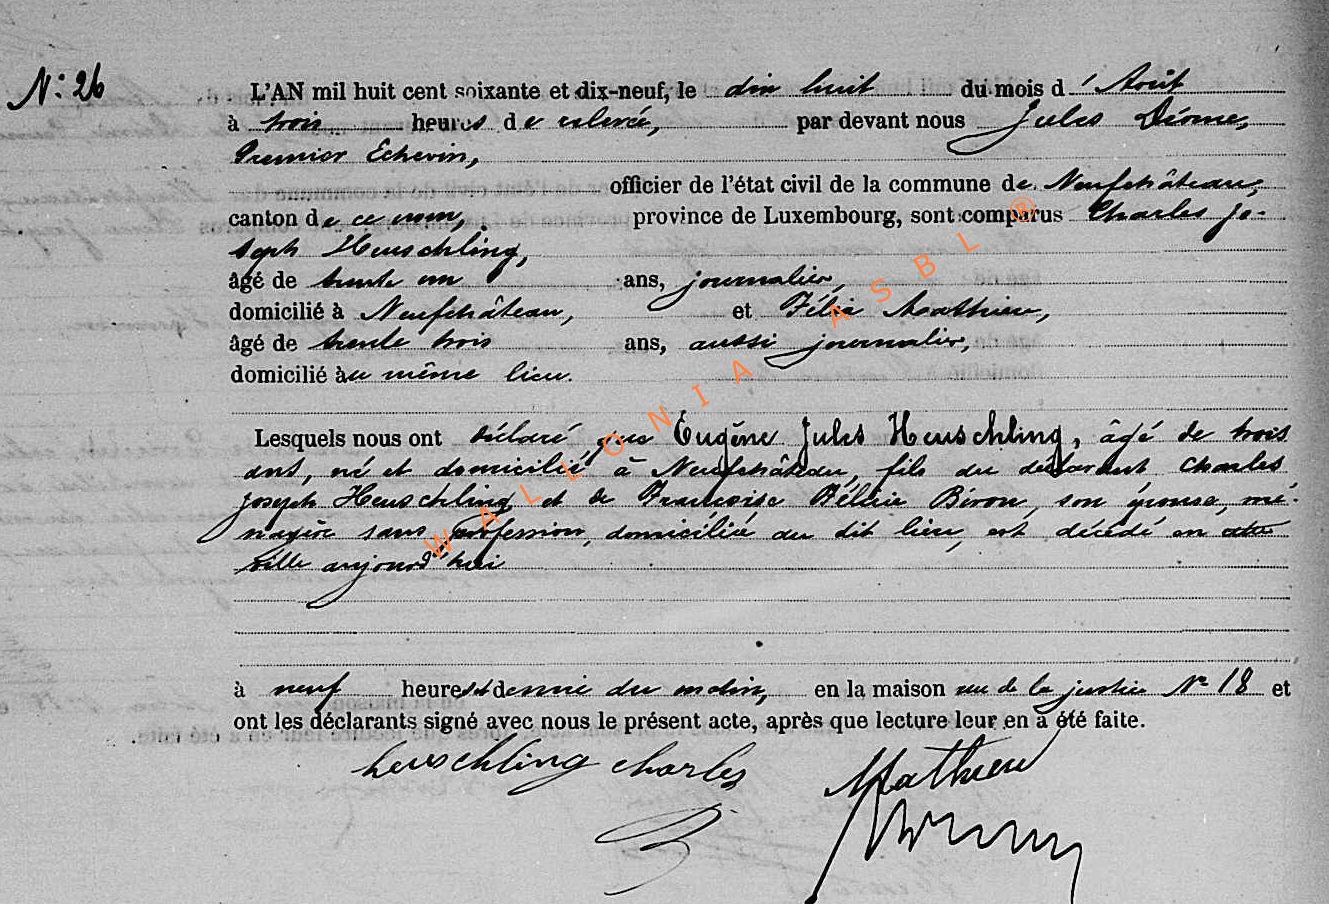 N: 26
L'AN mil huit cent soixante et dix-neuf, le dix huit du mois d' Août
à trois heures de relevée, par devant nous Jules Dérome,
Premier Echevin,
officier de l'état civil de la commune de Neufchâteau,
canton de ce nom, province de Luxembourg, sont comparus Charles Jo-
seph Heuschling,
âgé de trente un ans, journalier,
domicilié à Neufchâteau, et Félix Mathieu,
âgé de trente trois ans, aussi journalier,
domicilié au même lieu.
Lesquels nous ont déclaré que Eugène Jules Heuschling, âgé de trois
ans, né et domicilié à Neufchâteau, fils du déclarant Charles
Joseph Heuschling et de Françoise Pélérie Biron, son épouse, mé-
nagère sans profession, domiciliée au dit lieu, est décédé en cette
ville aujourd'hui
à neuf heures et demie du matin, en la maison rue de la justice No 18 et
ont les déclarants signé avec nous le présent acte, après que lecture leur en a été faite.
heuschling charles
Mathieu
WALLONIA ASBL ®